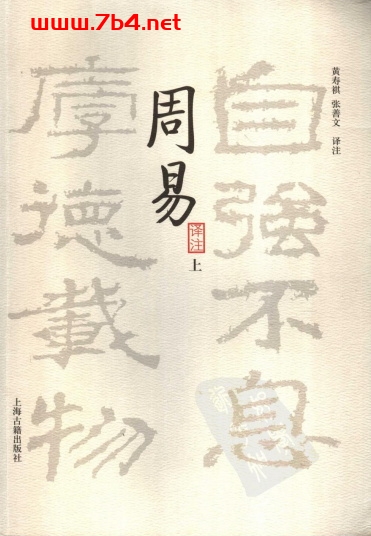 www.7b4.net
黄寿祺 张善文 译注
自強不息
厚德載物
周易
译注
上
上海古籍出版社